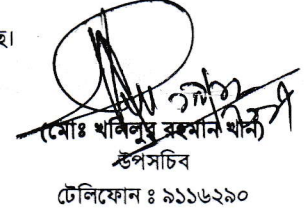 হ।
(মোঃ খলিলুর রহমান খান)
উপসচিব
টেলিফোন ঃ ৯১১৬২৯০